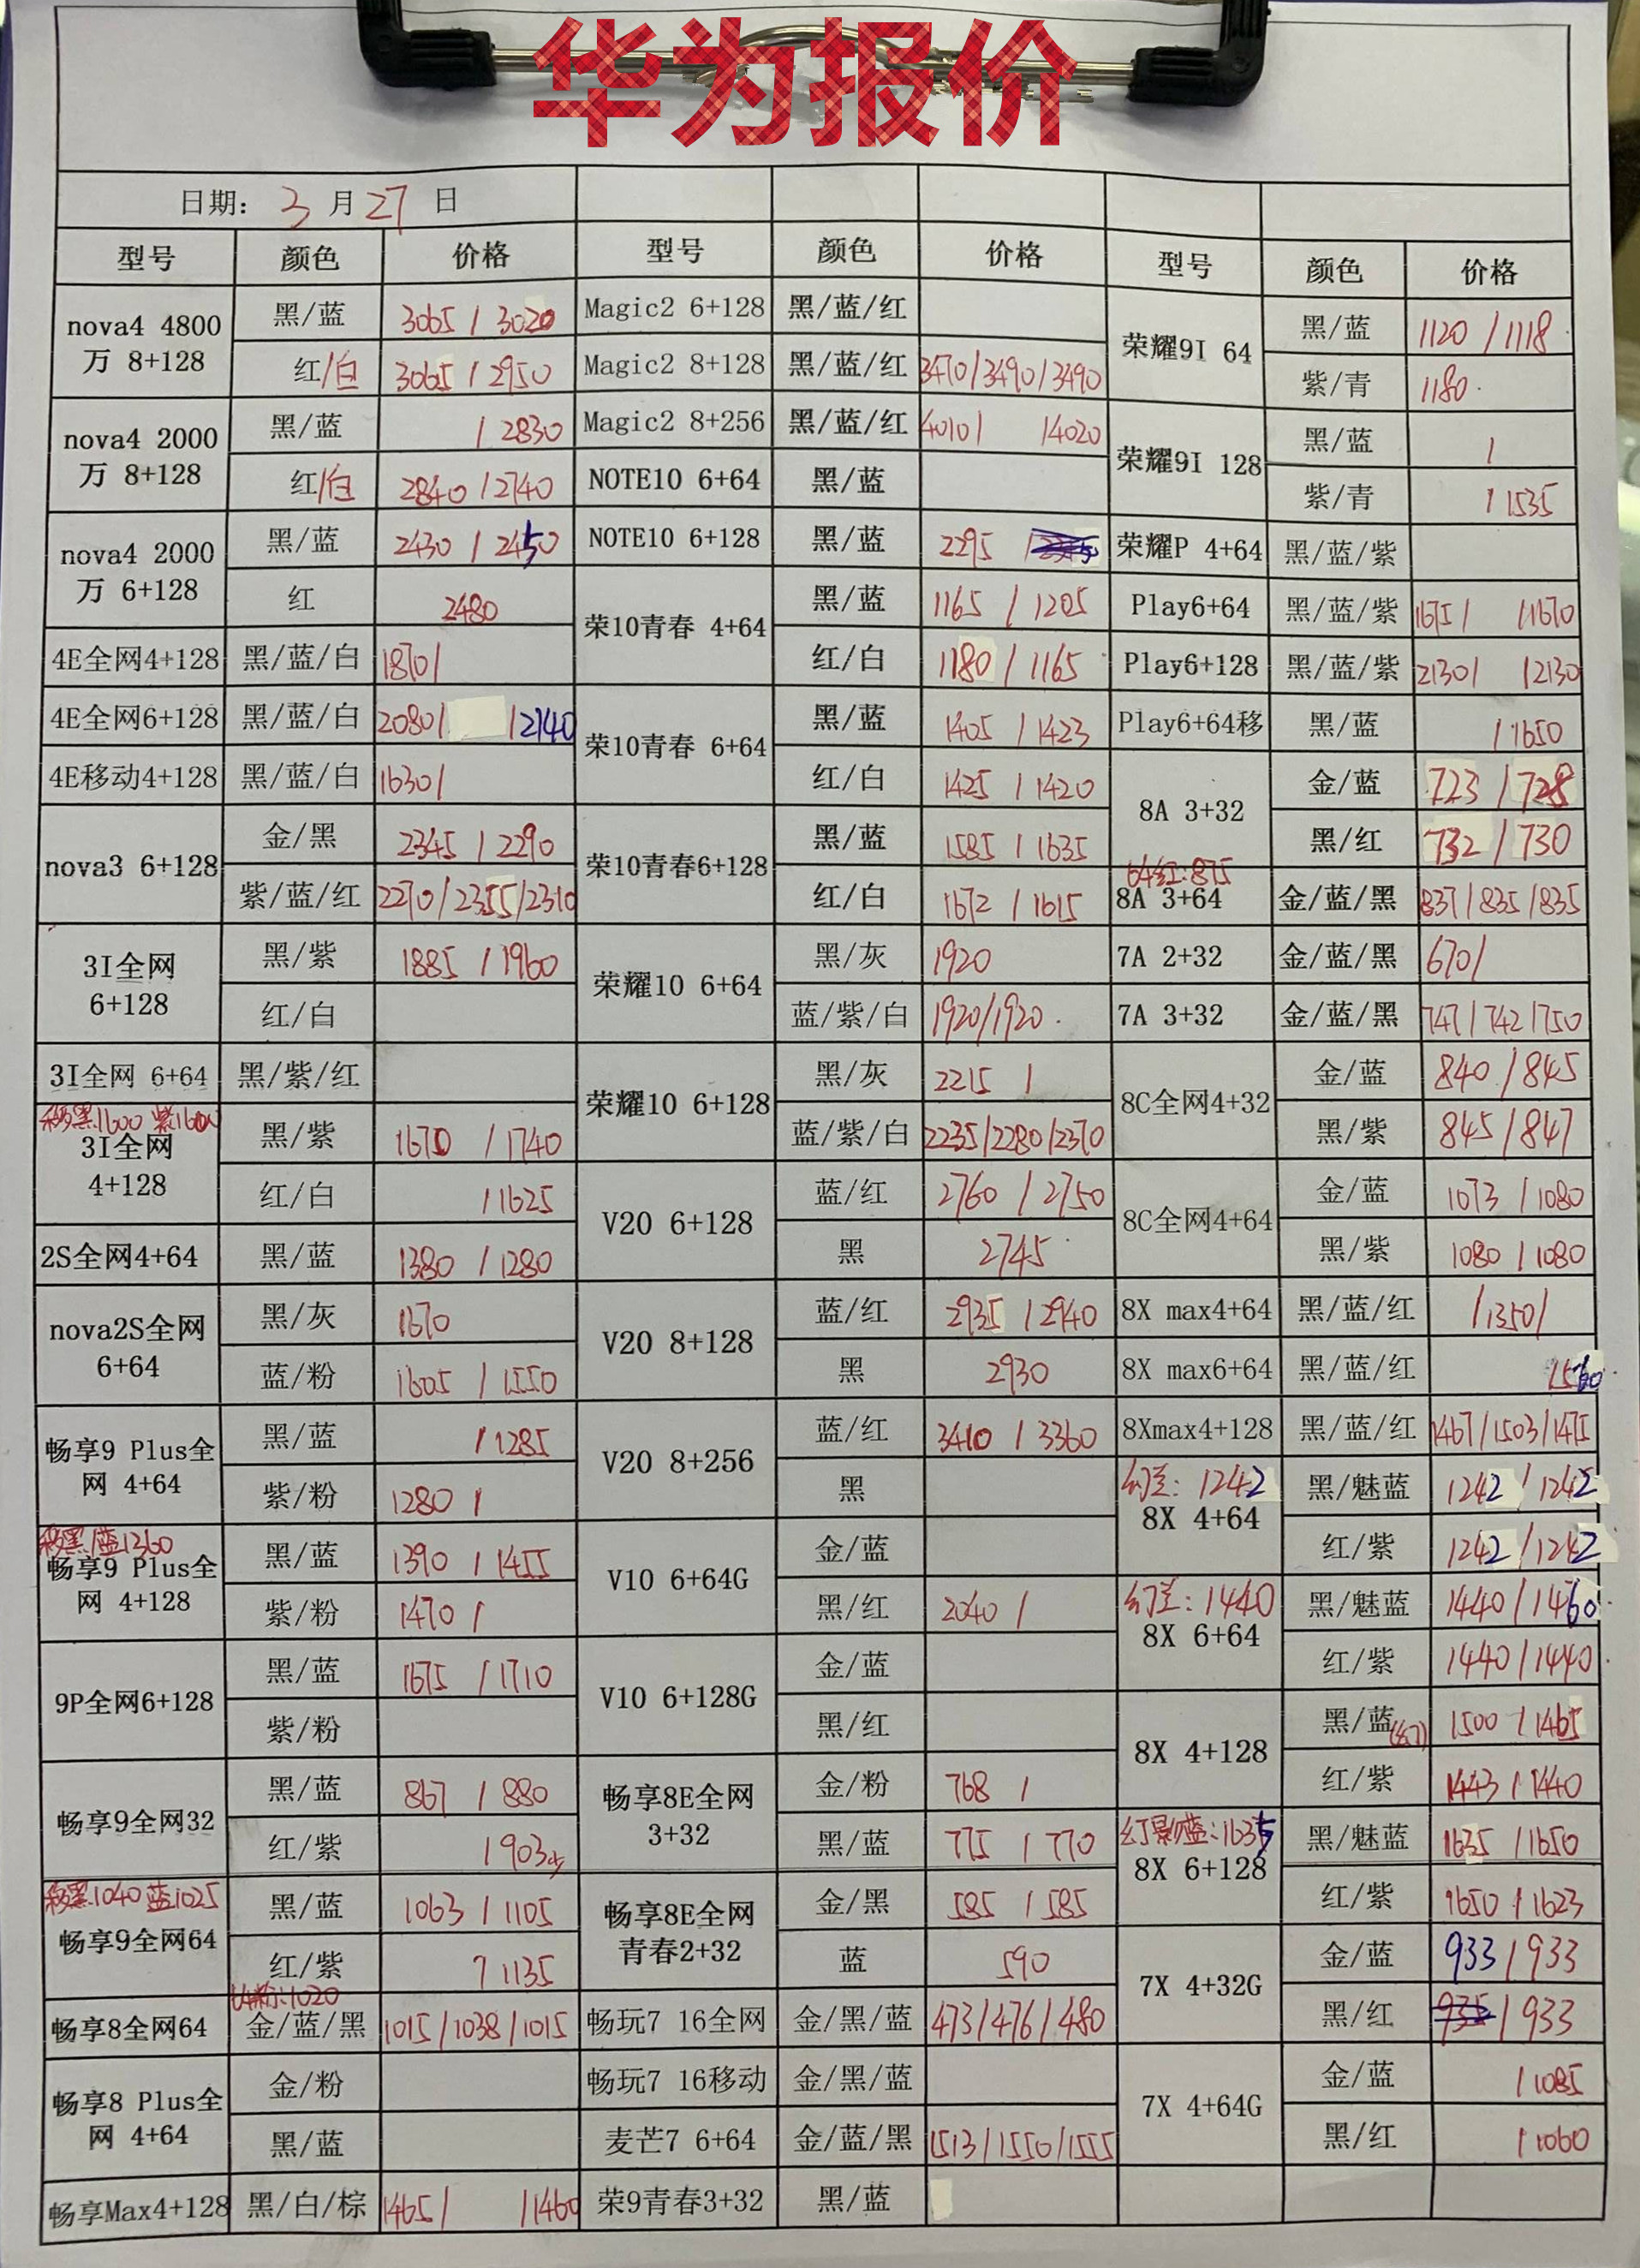 华为报价
日期: 3 月 27 日
型号 颜色 价格 型号 颜色 价格 型号 颜色 价格
nova4 4800万 8+128 黑/蓝 3065 / 3020
红/白 3065 / 2950
nova4 2000万 8+128 黑/蓝 / 2830
红/白 2840 / 2740
nova4 2000万 6+128 黑/蓝 2430 / 2450
红 2480
4E全网4+128 黑/蓝/白 1870/
4E全网6+128 黑/蓝/白 2080/ /2140
4E移动4+128 黑/蓝/白 1630/
nova3 6+128 金/黑 2345 / 2290
紫/蓝/红 2270/2355/2310
3I全网 6+128 黑/紫 1885 / 1960
红/白
3I全网 6+64 黑/紫/红
移黑1600 紫1600
3I全网 4+128 黑/紫 1670 / 1740
红/白 / 1625
2S全网4+64 黑/蓝 1380 / 1280
nova2S全网 6+64 黑/灰 1670
蓝/粉 1605 / 1550
畅享9 Plus全网 4+64 黑/蓝 / 1285
紫/粉 1280 /
移黑/蓝1360
畅享9 Plus全网 4+128 黑/蓝 1390 / 1455
紫/粉 1470 /
9P全网6+128 黑/蓝 1675 / 1710
紫/粉
畅享9全网32 黑/蓝 867 / 880
红/紫 / 903少
移黑1040 蓝1025
畅享9全网64 黑/蓝 1063 / 1105
红/紫 / 1135
粉:1020
畅享8全网64 金/蓝/黑 1015/1038/1015
畅享8 Plus全网 4+64 金/粉
黑/蓝
畅享Max4+128 黑/白/棕 1465/ /1460
Magic2 6+128 黑/蓝/红
Magic2 8+128 黑/蓝/红 3470/3490/3490
Magic2 8+256 黑/蓝/红 4010/ /4020
NOTE10 6+64 黑/蓝
NOTE10 6+128 黑/蓝 2295 /
荣10青春 4+64 黑/蓝 1165 / 1205
红/白 1180 / 1165
荣10青春 6+64 黑/蓝 1405 / 1423
红/白 1425 / 1420
荣10青春6+128 黑/蓝 1585 / 1635
红/白 1672 / 1615
荣耀10 6+64 黑/灰 1920
蓝/紫/白 1920/1920
荣耀10 6+128 黑/灰 2215 /
蓝/紫/白 2235/2280/2370
V20 6+128 蓝/红 2760 / 2750
黑 2745
V20 8+128 蓝/红 2935 / 2940
黑 2930
V20 8+256 蓝/红 3410 / 3360
黑
V10 6+64G 金/蓝
黑/红 2040 /
V10 6+128G 金/蓝
黑/红
畅享8E全网 3+32 金/粉 768 /
黑/蓝 775 / 770
畅享8E全网青春2+32 金/黑 585 / 585
蓝 590
畅玩7 16全网 金/黑/蓝 473/476/480
畅玩7 16移动 金/黑/蓝
麦芒7 6+64 金/蓝/黑 1513/1550/1555
荣9青春3+32 黑/蓝
荣耀9I 64 黑/蓝 1120 / 1118
紫/青 1180
荣耀9I 128 黑/蓝 /
紫/青 / 1535
荣耀P 4+64 黑/蓝/紫
Play6+64 黑/蓝/紫 1675/ /1670
Play6+128 黑/蓝/紫 2130/ /2130
Play6+64移 黑/蓝 / 1650
8A 3+32 金/蓝 723 / 728
黑/红 732 / 730
64红:875
8A 3+64 金/蓝/黑 837/835/835
7A 2+32 金/蓝/黑 670/
7A 3+32 金/蓝/黑 747/742/750
8C全网4+32 金/蓝 840 / 845
黑/紫 845 / 847
8C全网4+64 金/蓝 1073 / 1080
黑/紫 1080 / 1080
8X max4+64 黑/蓝/红 /1350/
8X max6+64 黑/蓝/红 1560
8Xmax4+128 黑/蓝/红 1467/1503/1475
幻兰: 1242
8X 4+64 黑/魅蓝 1242 / 1242
红/紫 1242 / 1242
幻兰: 1440
8X 6+64 黑/魅蓝 1440 / 1460
红/紫 1440 / 1440
8X 4+128 黑/蓝(幻) 1500 / 1465
红/紫 1443 / 1440
幻影蓝:1635
8X 6+128 黑/魅蓝 1635 / 1650
红/紫 1650 / 1623
7X 4+32G 金/蓝 933 / 933
黑/红 935 / 933
7X 4+64G 金/蓝 / 1085
黑/红 / 1060